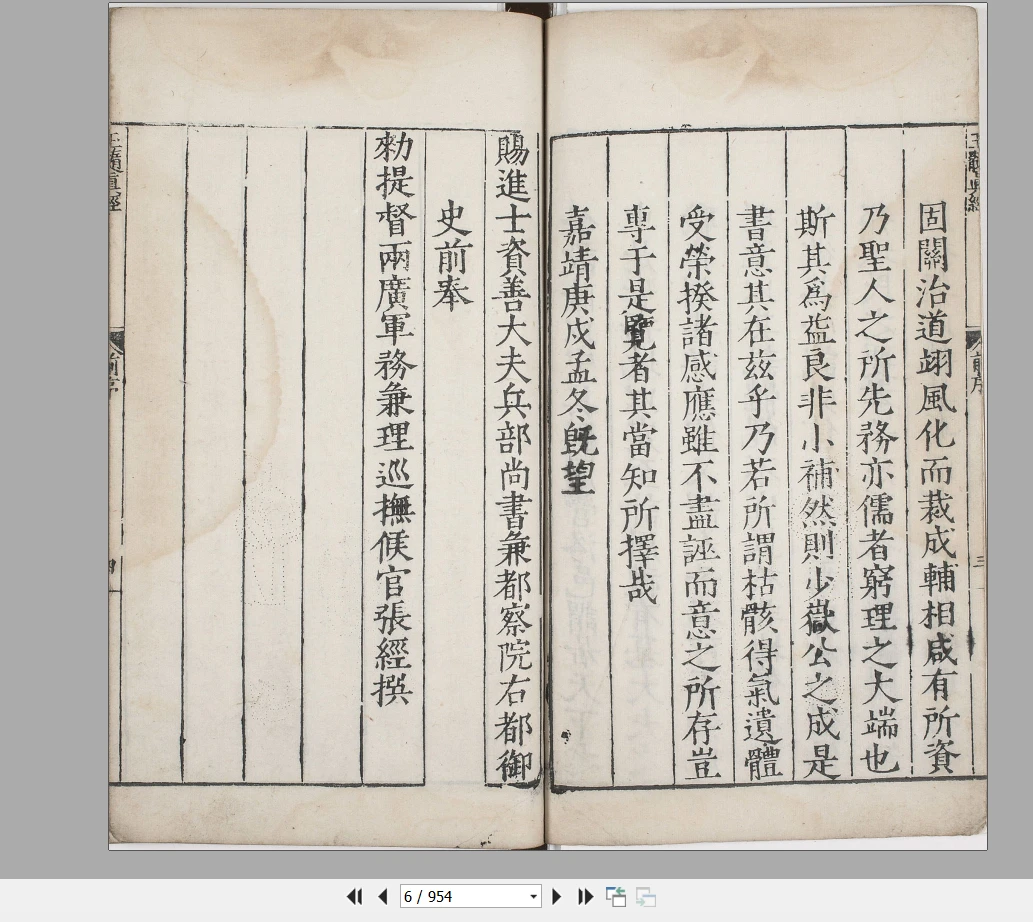 固關治道翊風化而裁成輔相咸有所資
乃聖人之所先務亦儒者窮理之大端也
斯其爲益良非小補然則少嶽公之成是
書意其在茲乎乃若所謂枯骸得氣遺體
受榮揆諸感應雖不盡誣而意之所存豈
專于是覽者其當知所擇哉
嘉靖庚戍孟冬既望
賜進士資善大夫兵部尚書兼都察院右都御
史前奉
勑提督兩廣軍務兼理巡撫候官張經撰
玉髓眞經
前序
三
玉髓眞經
前序
四
6 / 954